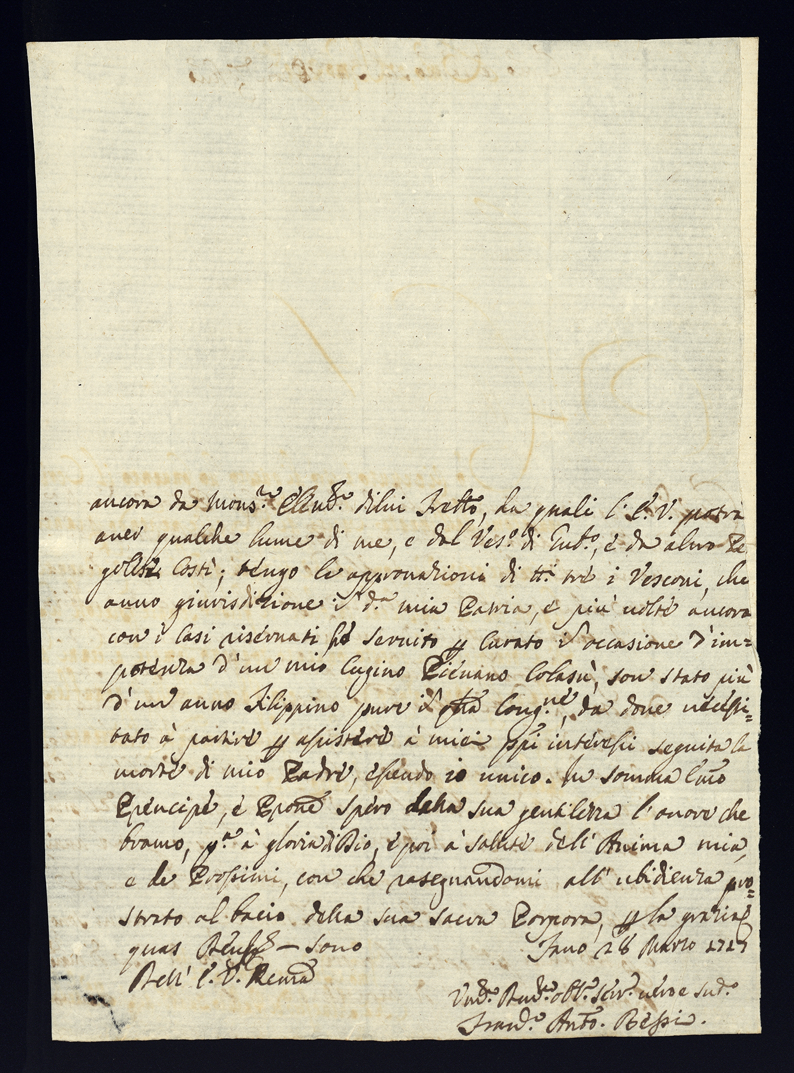 ancora da Mons.re Ill.mo di lui Fretto, da quali l'E. V. potrà
aver qualche lume di me, e dal Vesc.o di Gub.o, e da altro Re
golisi costì; tengo le approvazioni di tt.i tré i Vescovi, che
anno giurisdizione i d.a mia Patria, e più volte ancora
con i Casi riservati hò servito p Curato i occasione d'im=
potenza d'un mio Cugino Pievano Colasù, son stato più
d'un anno Filippino pure i Cong.ne, da dove necessi=
tato à partire p assistere à miei ppi interessi seguita la
morte di mio Padre, essendo io unico. In somma
Prencipe, e Prone spero dalla sua gentilezza l'onore che
bramo, p.a à gloria di Dio, e poi à salute dell'Anima mia,
e de Prossimi, con che rasegnandomi all'ubidienza pro=
strato al bacio della sua sacra Porpora, p la grazia
quas sono Fano 28 Marzo 1727
Dell'E. V. Rema
Um.o obb.o ser.e vero e sud.o
Fran.co Ant.o Bessi.